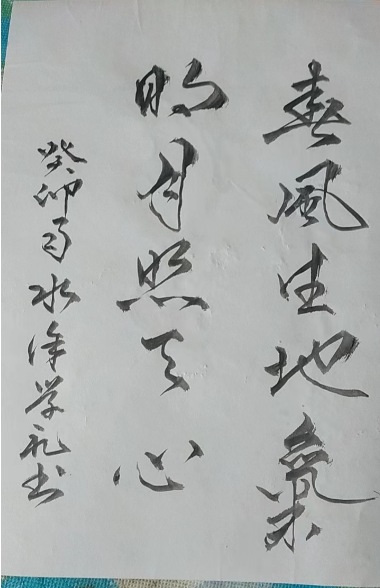 春風生地氣
明月照天心
癸卯 水徐学礼书